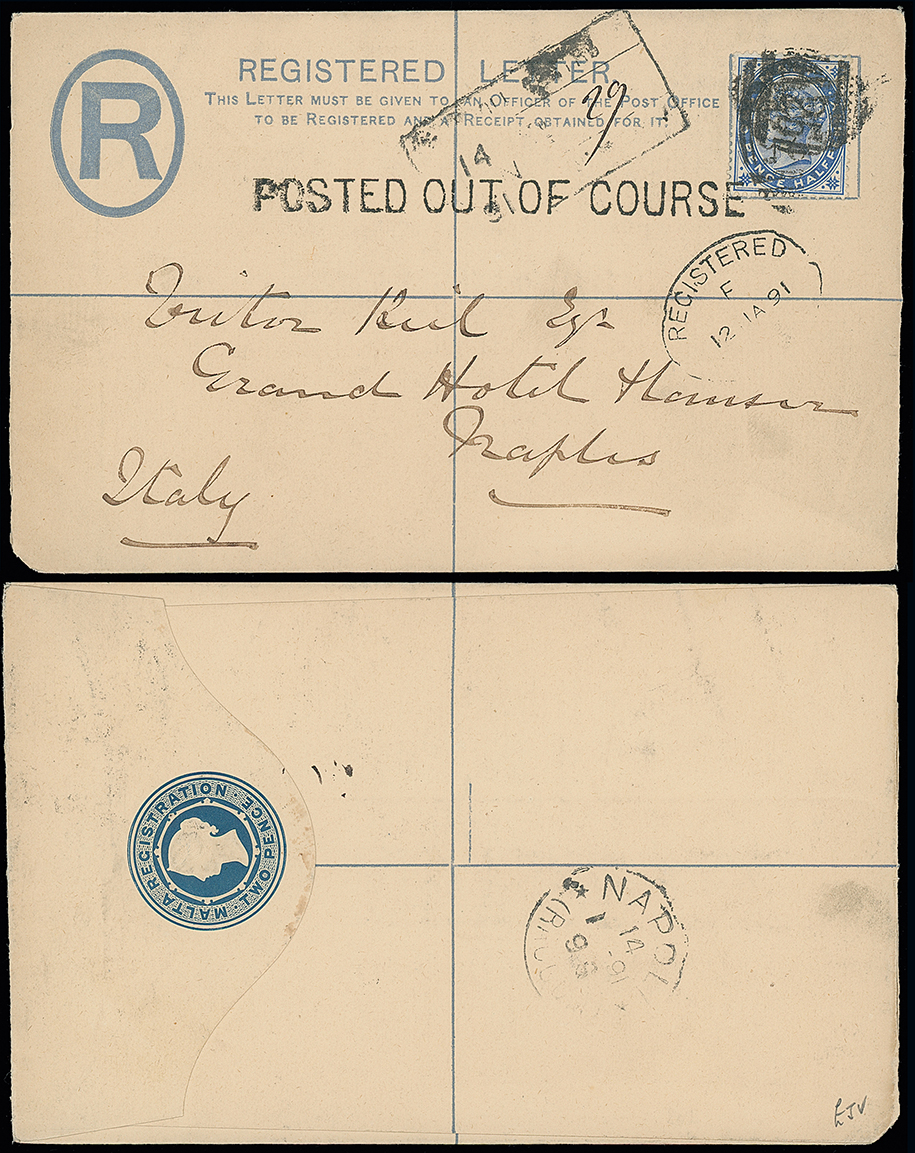 R
REGISTERED LETTER
THIS LETTER MUST BE GIVEN TO AN OFFICER OF THE POST OFFICE
TO BE REGISTERED AND A RECEIPT OBTAINED FOR IT.
79
14
PENCE HALF
POSTED OUT OF COURSE
REGISTERED
F
12 JA 91
Esqr
Grand Hotel
Naples
Italy
MALTA REGISTRATION · TWO PENCE ·
NAPOLI
14
1
91
EJV